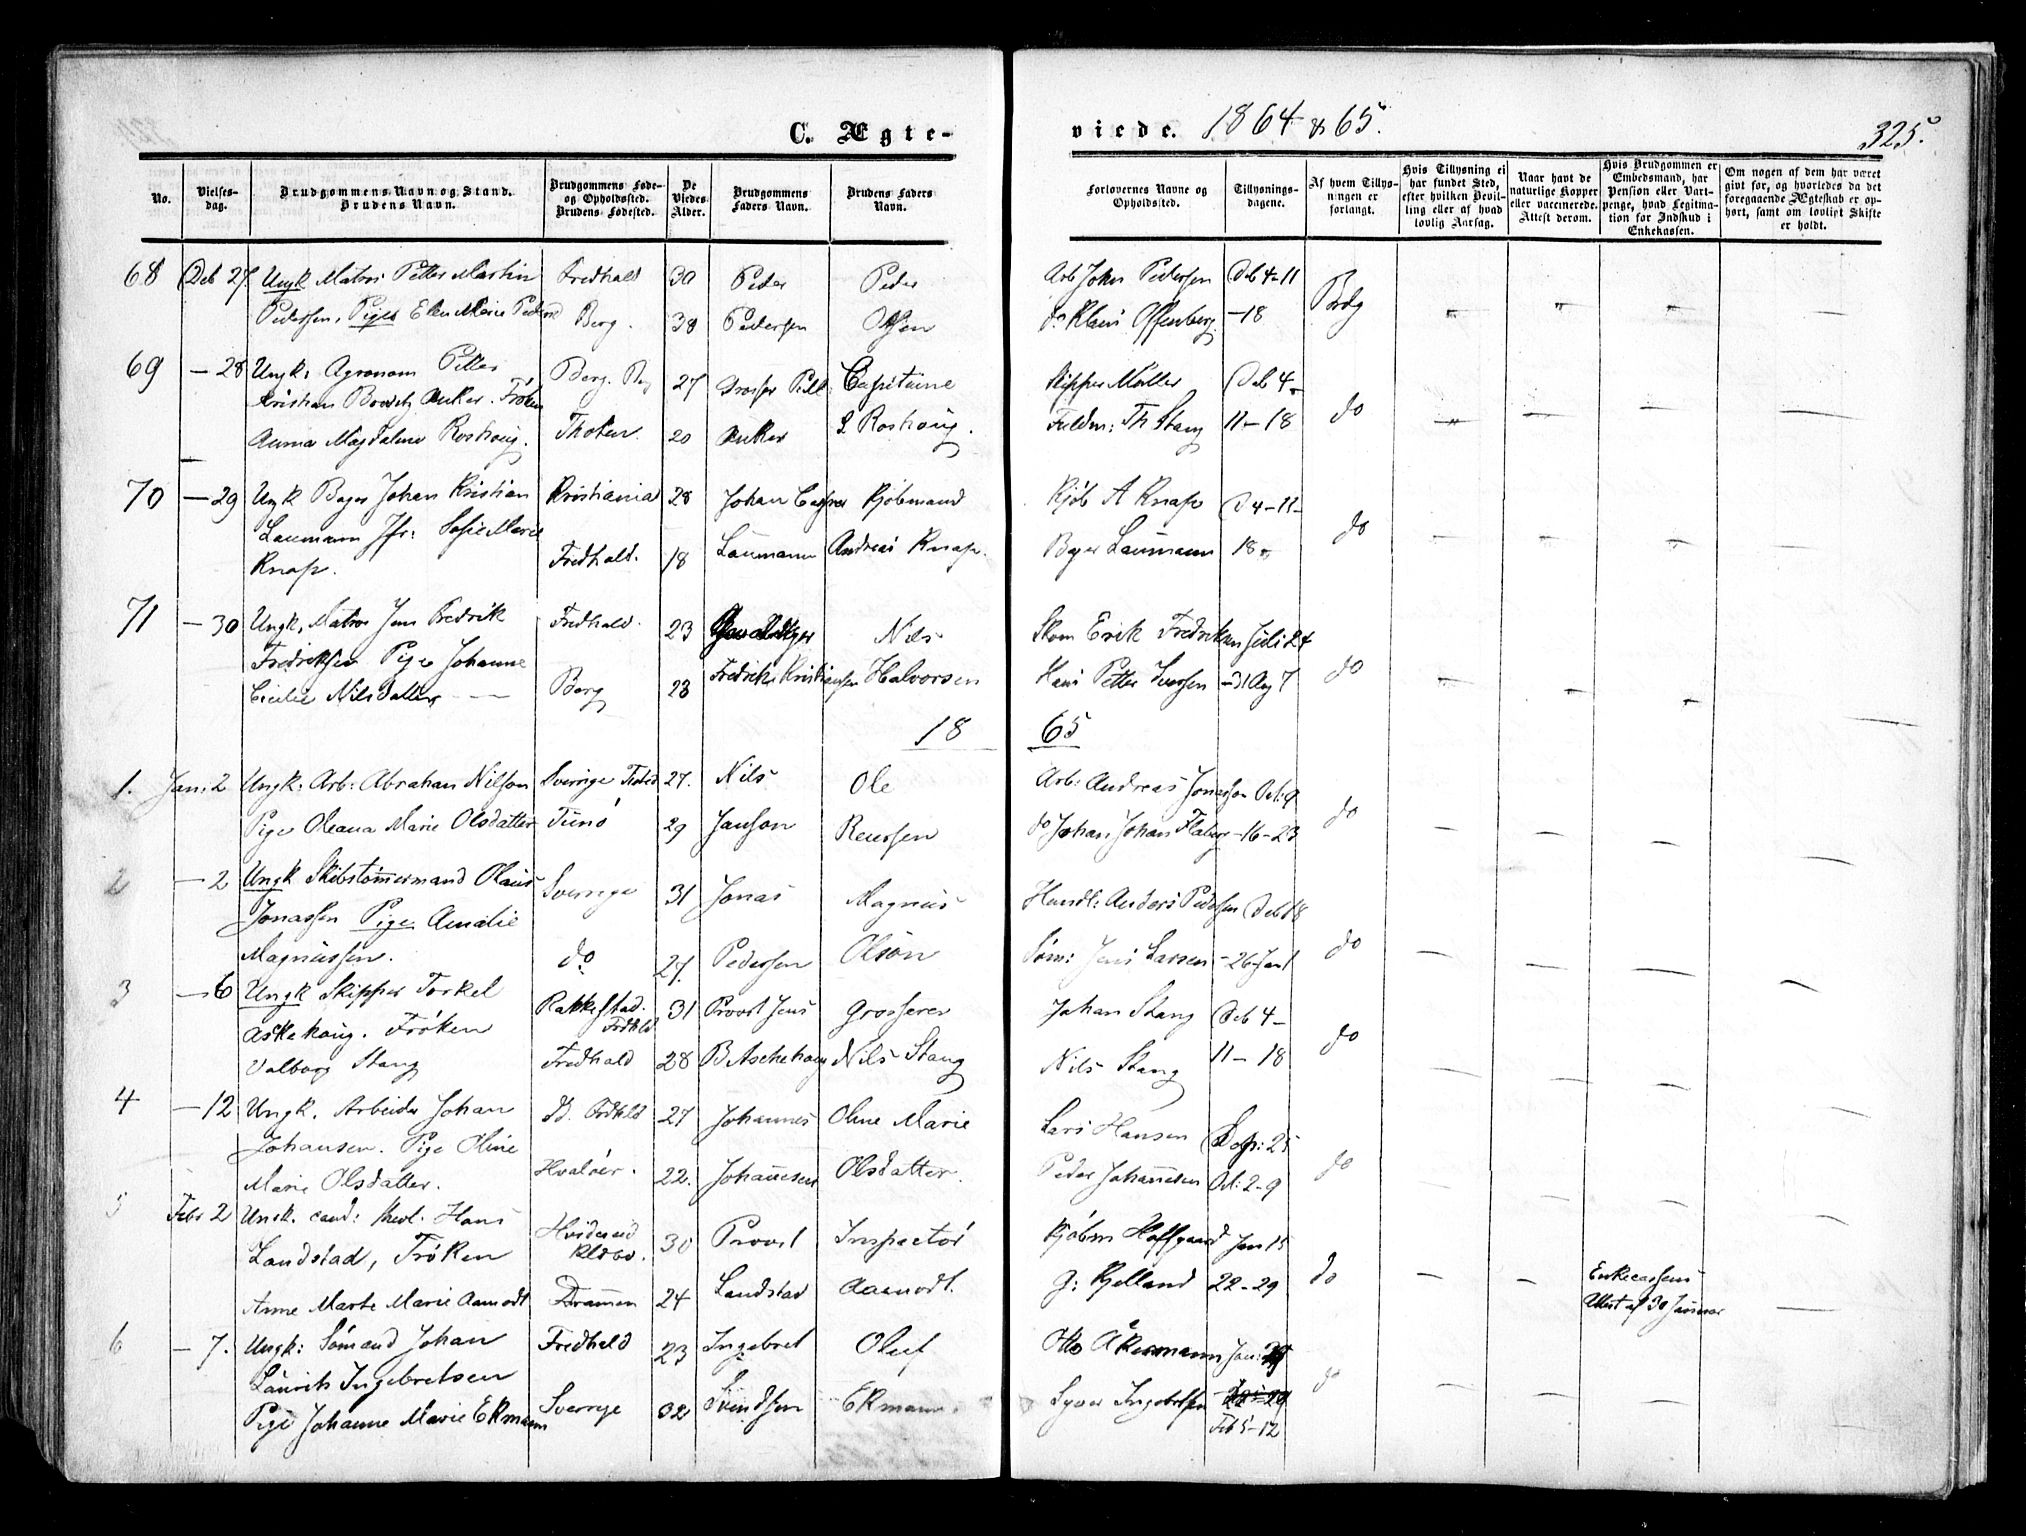 C. Ægte-
viede. 1864 & 65.
325.
No.
Vielses-
dag.
Brudgommens Navn og Stand.
Brudens Navn.
Brudgommens Føde-
og Opholdssted.
Brudens Fødested.
De
Viedes
Alder.
Brudgommens
Faders Navn.
Brudens Faders
Navn.
Forlovernes Navne og
Opholdssted.
Tillysnings-
dagene.
Af hvem Tillys-
ningen er
forlangt.
Hvis Tillysning ei
har fundet Sted,
efter hvilken Bevil-
ling eller af hvad
lovlig Aarsag.
Naar havt de
naturlige Kopper
eller vaccinerede.
Attest derom.
Hvis Brudgommen er
Embedsmand, har
Pension eller Vart-
penge, hvad Legitima-
tion for Indskud i
Enkekassen.
Om nogen af dem har været
givt før, og hvorledes da det
foregaaende Ægteskab er op-
hørt, samt om lovligt Skifte
er holdt.
68 Deb 27 Ungk Matros Petter Martin Fredhald 30 Peder Peder Arb John Pedersen Deb 4-11 Brdg
Pedersen, Pige Elen Marie Berg. 38 Pedersen Olsen do Klaus Offenberg -18
69 — 28 Ungk: Agronom Petter Berg. 27 Capitaine Skipper Møller Deb 4-
Kristian Anker. Frøken
Anna Magdalene Roshoug. Thoten. 20 Anker Roshoug. Th Stang 11-18 do
70 — 29 Ungk Bager Johan Kristian Kristiania 28 Johan Kjøbmand Kjøb A Knap D 4-11-
Laumann Jfr: Sofie Marie Fredhald. 18 Laumann Andreas Knap. Bager Laumann 18 do
Knap.
71 — 30 Ungk, Matros Jens Fredrik Fredhald. 23 Nils Skom Erik Fredriksen Juli 24
Fredriksen Pige Johanne Fredrik Kristiansen Halvorsen Hans Petter Iversen -31 Aug 7 do
Cicilie Nilsdatter Berg 23
18 65
1. Jan: 2 Ungk: Arb: Abraham Nilsson Sverrige 27. Nils Ole Arb: Andreas Jonasson Oct: 9
Pige Oleana Marie Olsdatter Tunø 29 Jansson do Johan Johan -16-23 do
2 — 2 Ungk Skibstømmermand Olaus Sverrige 31 Jonas Magnus Handl: Anders Pedersen Deb 18
Jonassen Pige Amalie
Magnussen. do 27. Pedersen Olson Søm: Jens Larsen -26-Jan 1 do
3 — 6 Ungk Skipper Torkel Rakkestad. 31 Provst Jens Grosserer Johan Stang Deb 4-
Askehoug. Frøken Fredhald 28 B Aschehoug Nils Stang Nils Stang 11-18 do
Valborg Stang
4 — 12 Ungk. Arbeider Johan Id. Frdhld 27 Johannes Oline Marie Lars Hansen 25
Johansen. Pige Oline
Marie Olsdatter. Hvaløer. 22. Johannesen Olsdatter. Peder Johannesen Oct: 2-9 do
5 Febr 2 Ungk. cand: theol: Hans Hvideseid 30 Provst Inspector Kjøbm Hoffgaard Jan 15
Landstad, Frøken
Anne Marte Marie Aamodt Drammen 24 Landstad Aamodt. G: Kjelland 22-29 do Enkecassens
Attest af 30 Januar
6 — 7. Ungk: Sømand Johan Fredhald 23 Ingebret Oluf Otto Åkermann Jan:
Laurits Ingebretsen
Pige Johanne Marie Ekmann Sverrige 32 Svendsen Ekmann. Syver Ingebretsen do
Feb 5-12